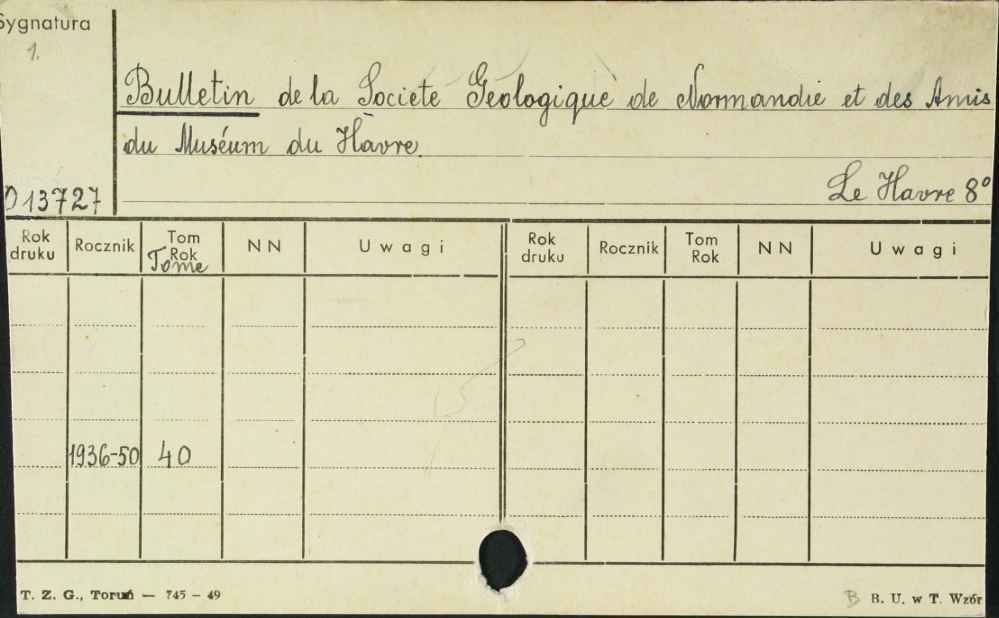 Sygnatura
1.
Bulletin de la Societé Geologique de Normandie et des Amis
du Muséum du Hàvre.
Le Havre 8°
013727
Rok druku Rocznik Tom Rok NN Uwagi Rok druku Rocznik Tom Rok NN Uwagi
Tome
1936-50 40
T. Z. G., Toruń — 745 – 49
B B. U. w T. Wzór